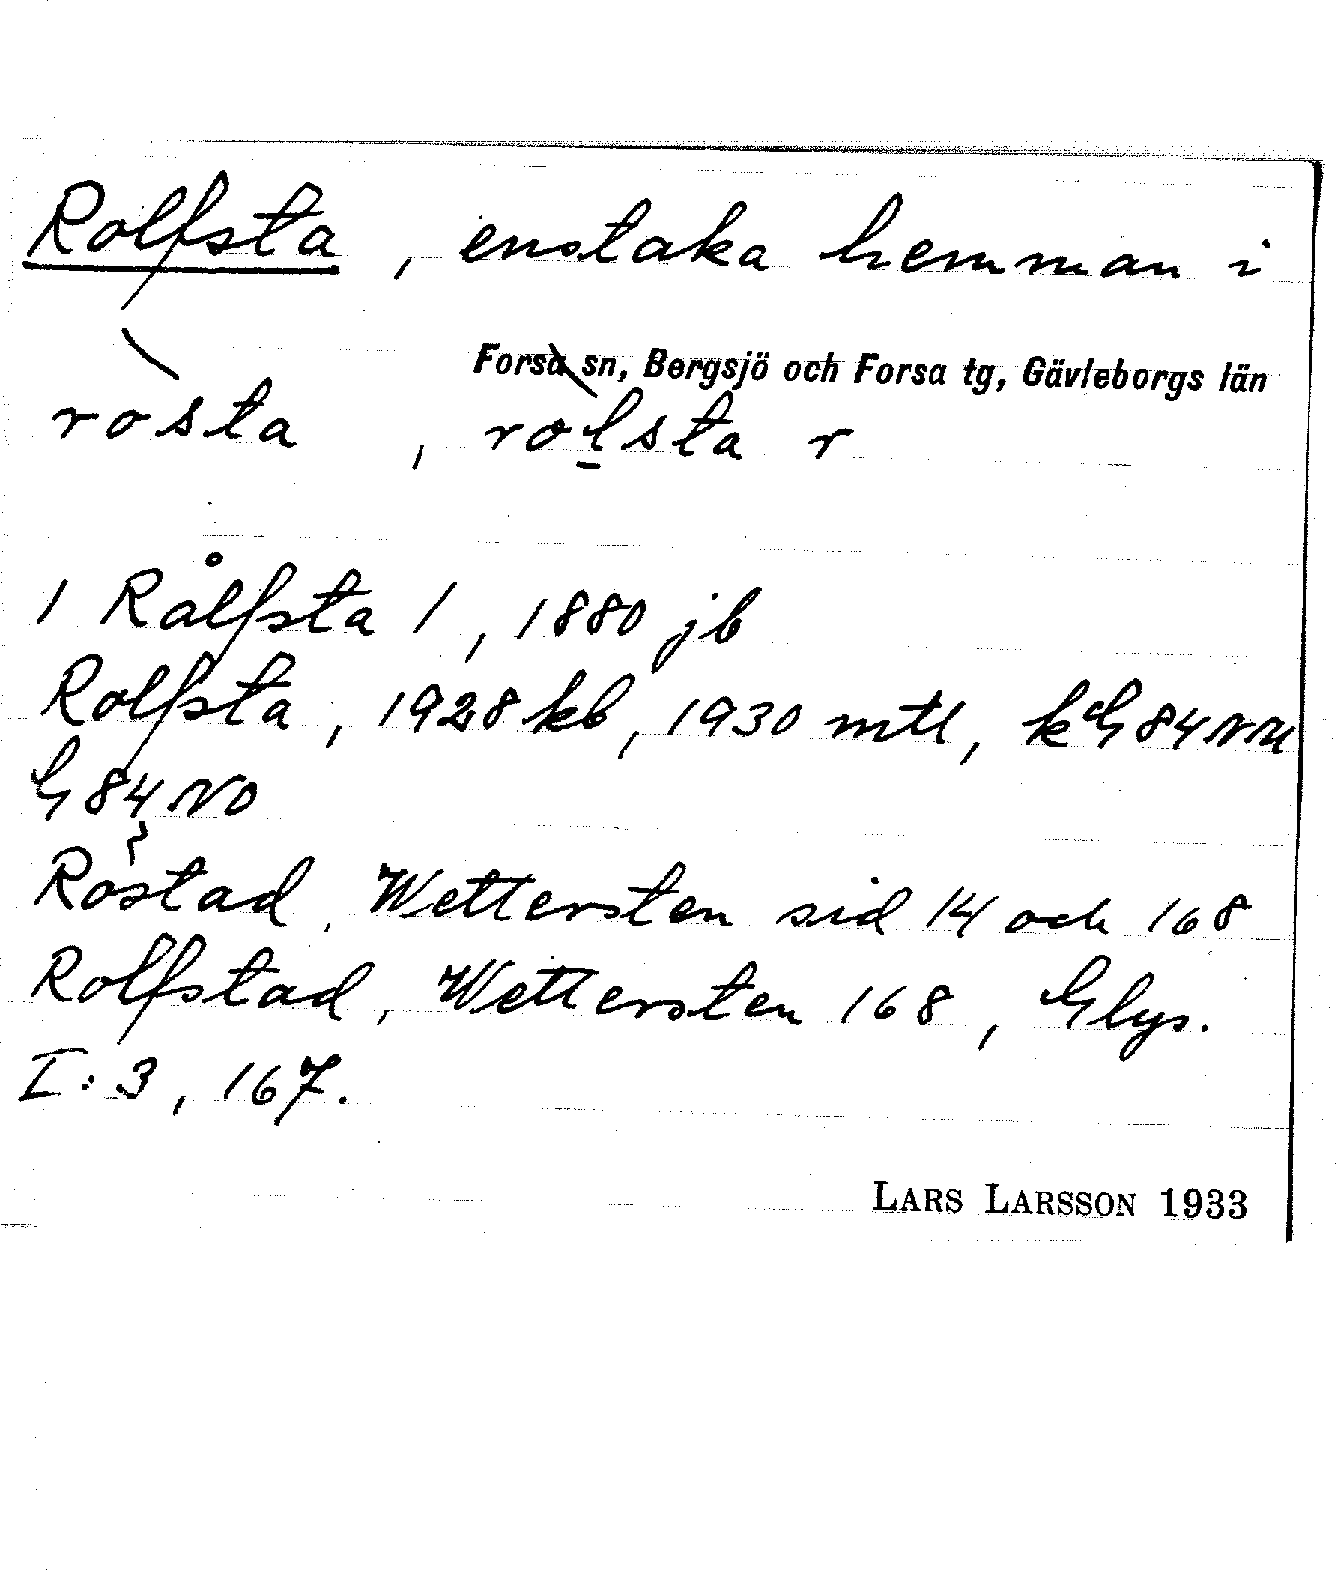 Rolfsta, enstaka hemman i
Forsa sn, Bergsjö och Forsa tg, Gävleborgs län
ròsta, ròl̠sta r
1 Rålfsta 1, 1880 jb
Rolfsta, 1928 kb, 1930 mtl, kG 84
G 84 NO
Rostad, Wettersten sid 14 och 168
Rolfstad, Wettersten 168, Glys.
I:3, 167.
LARS LARSSON 1933